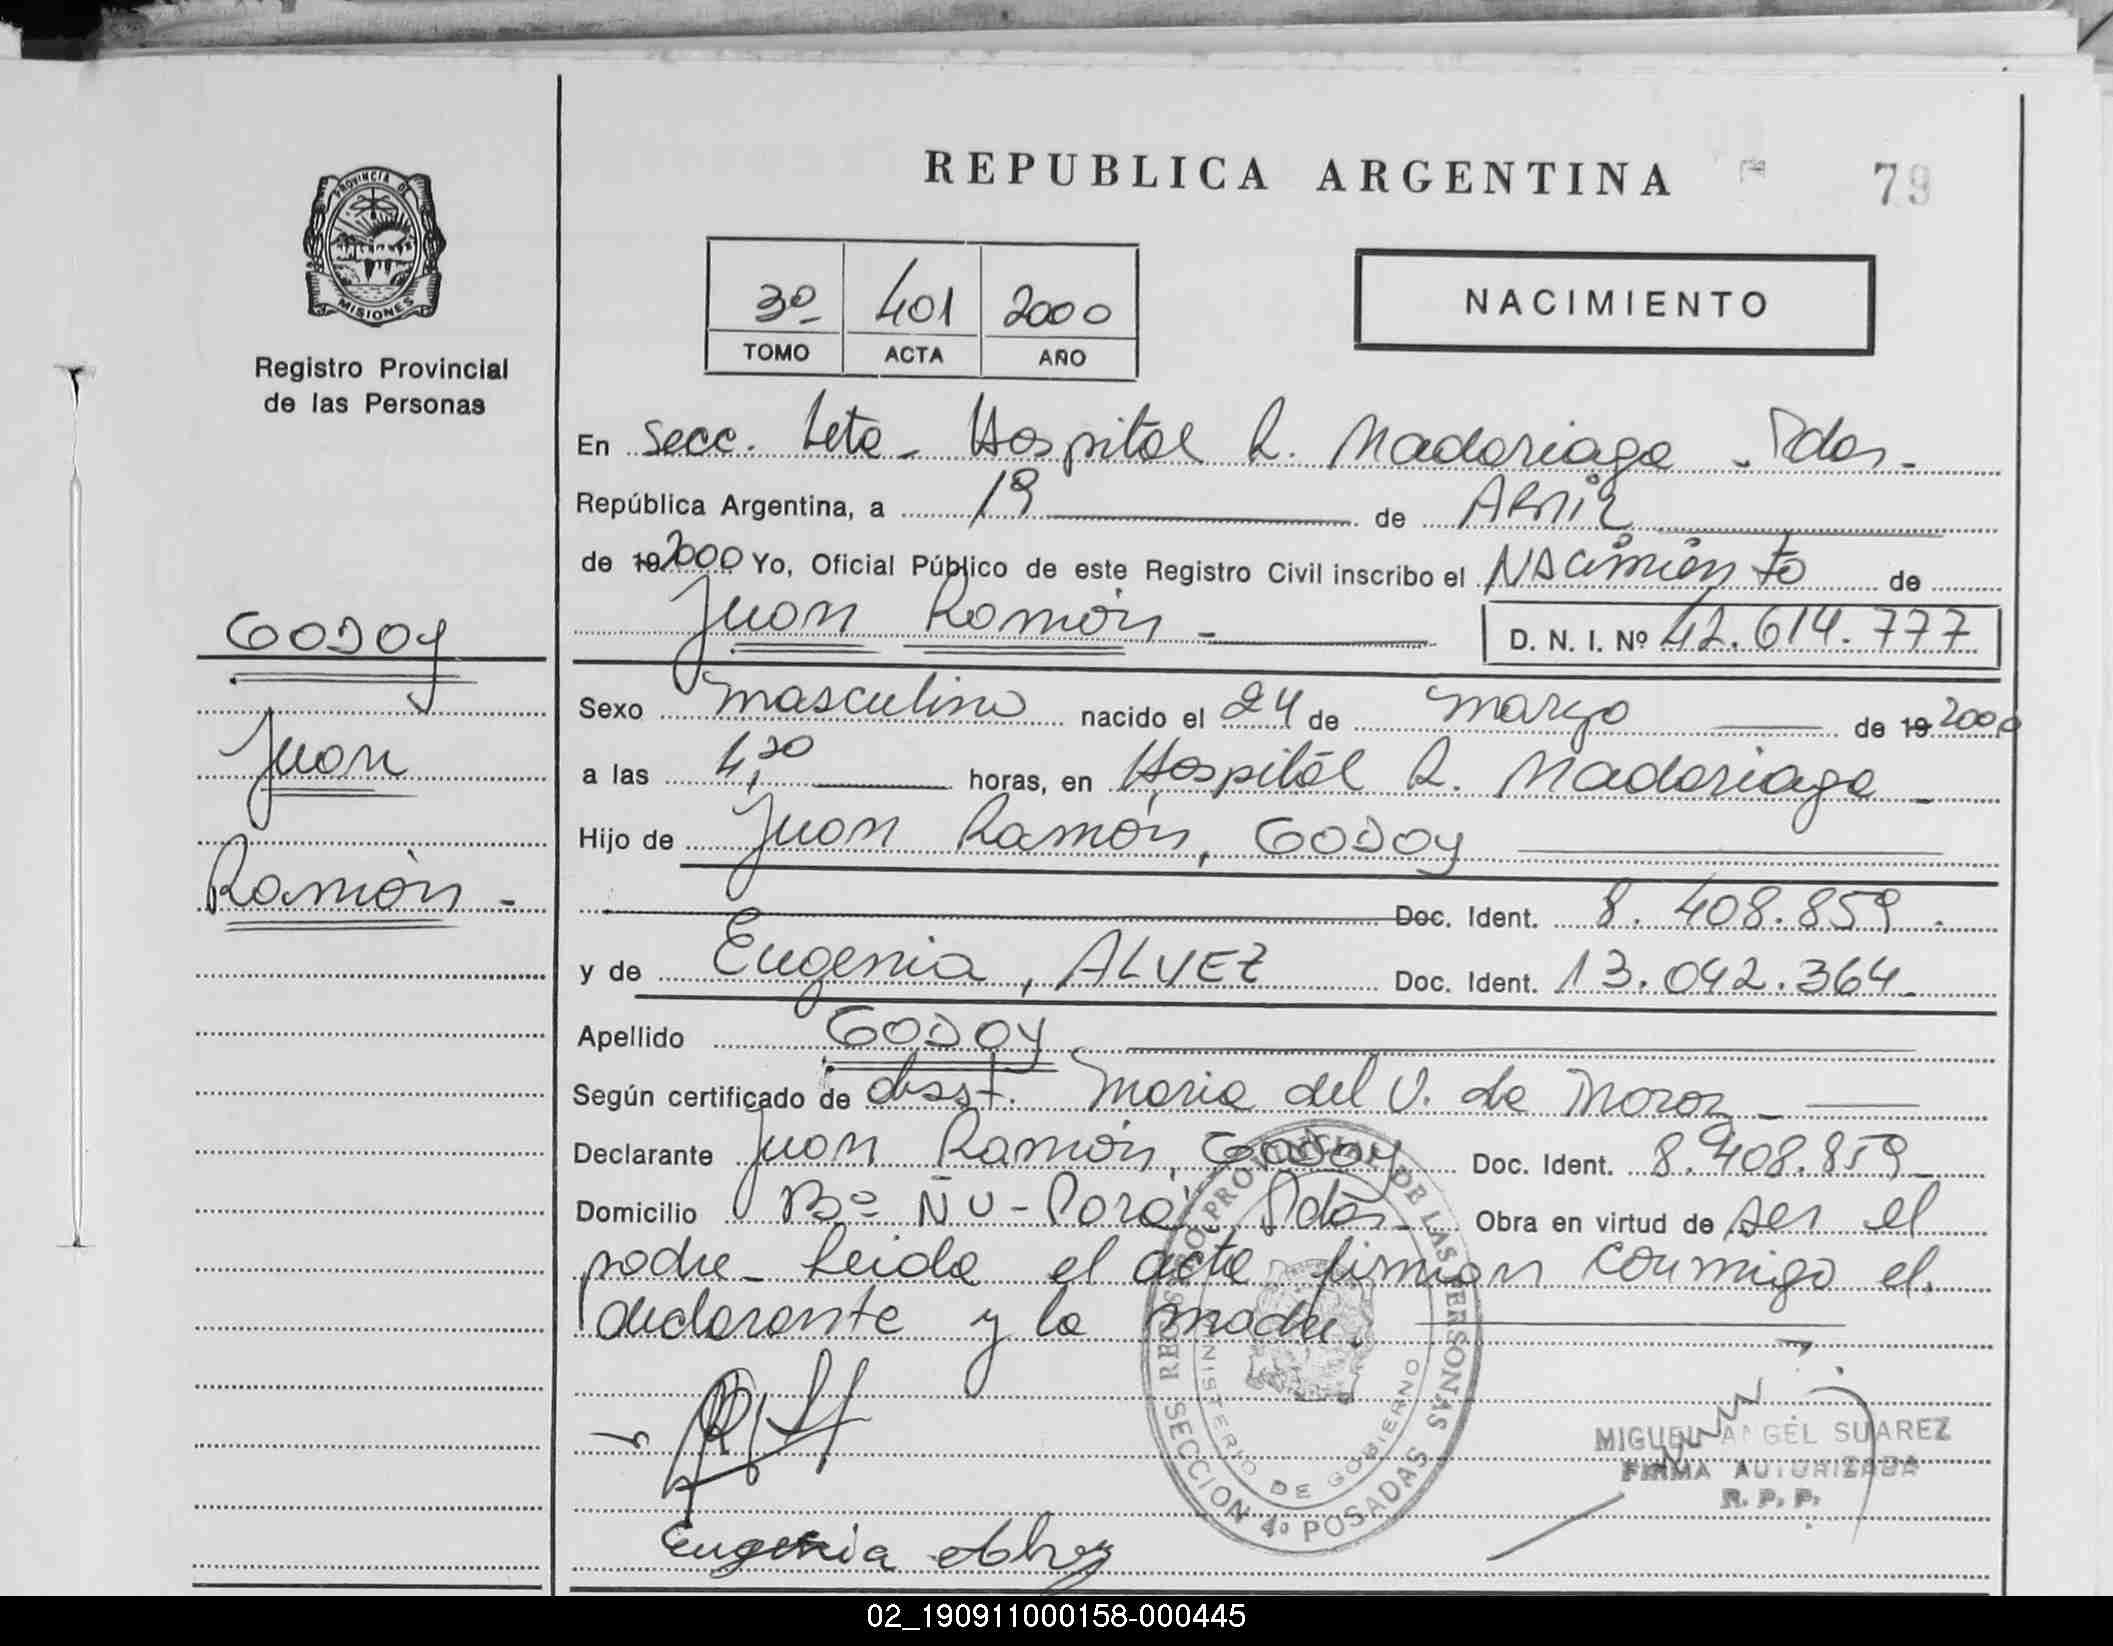 REPUBLICA ARGENTINA
79
PROVINCIA DE
MISIONES
Registro Provincial
de las Personas
3º 401 2000
TOMO ACTA AÑO
NACIMIENTO
En Secc. 4ta - Hospital R. Madariaga - Pdas -
República Argentina, a 19 de Abril
de 19 2000 Yo, Oficial Público de este Registro Civil inscribo el Nacimiento de
Juan Ramón - D. N. I. Nº 42.614.777
GODOY
Juan
Ramón -
Sexo masculino nacido el 24 de marzo de 19 2000
a las 4,20 horas, en Hospital R. Madariaga -
Hijo de Juan Ramón, GODOY
Doc. Ident. 8.408.859.
y de Eugenia, ALVEZ Doc. Ident. 13.042.364.
Apellido GODOY
Según certificado de obsst. Maria del V. de Moroz -
Declarante Juan Ramón, GODOY Doc. Ident. 8.408.859 -
Domicilio Bº ÑU-Porá, Pdas. Obra en virtud de ser el
padre - Leida el acta firman conmigo el
declarante y la madre.
REGISTRO PROVINCIAL DE LAS PERSONAS
MINISTERIO DE GOBIERNO
SECCION 4a POSADAS
MIGUEL ANGEL SUAREZ
FIRMA AUTORIZADA
R. P. P.
Eugenia Alvez
02_190911000158-000445